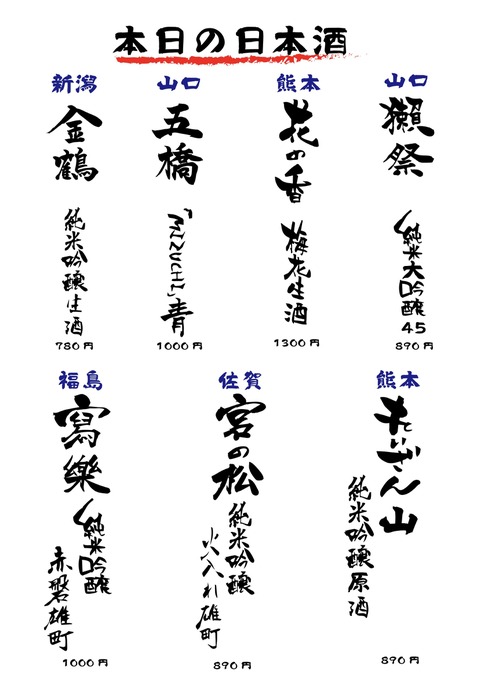 本日の日本酒
山口
獺祭
純米大吟醸
45
890円
熊本
花の香
梅花生酒
1300円
山口
五橋
「MIZUCHI」青
1000円
新潟
金鶴
純米吟醸生酒
780円
熊本
れいざん山
純米吟醸原酒
890円
佐賀
宮の松
純米吟醸
火入れ雄町
890円
福島
寫樂
純米吟醸
赤磐雄町
1000円